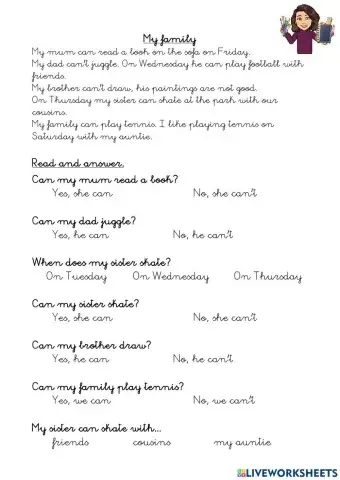 My family
My mum can read a book on the sofa on Friday.
My dad can't juggle. On Wednesday he can play football with
friends.
My brother can't draw, his paintings are not good.
On Thursday my sister can skate at the park with our
cousins.
My family can play tennis. I like playing tennis on
Saturday with my auntie.
Read and answer.
Can my mum read a book?
Yes, she can No, she can't
Can my dad juggle?
Yes, he can No, he can't
When does my sister skate?
On Tuesday On Wednesday On Thursday
Can my sister skate?
Yes, she can No, she can't
Can my brother draw?
Yes, he can No, he can't
Can my family play tennis?
Yes, we can No, we can't
My sister can skate with...
friends cousins my auntie
LIVEWORKSHEETS